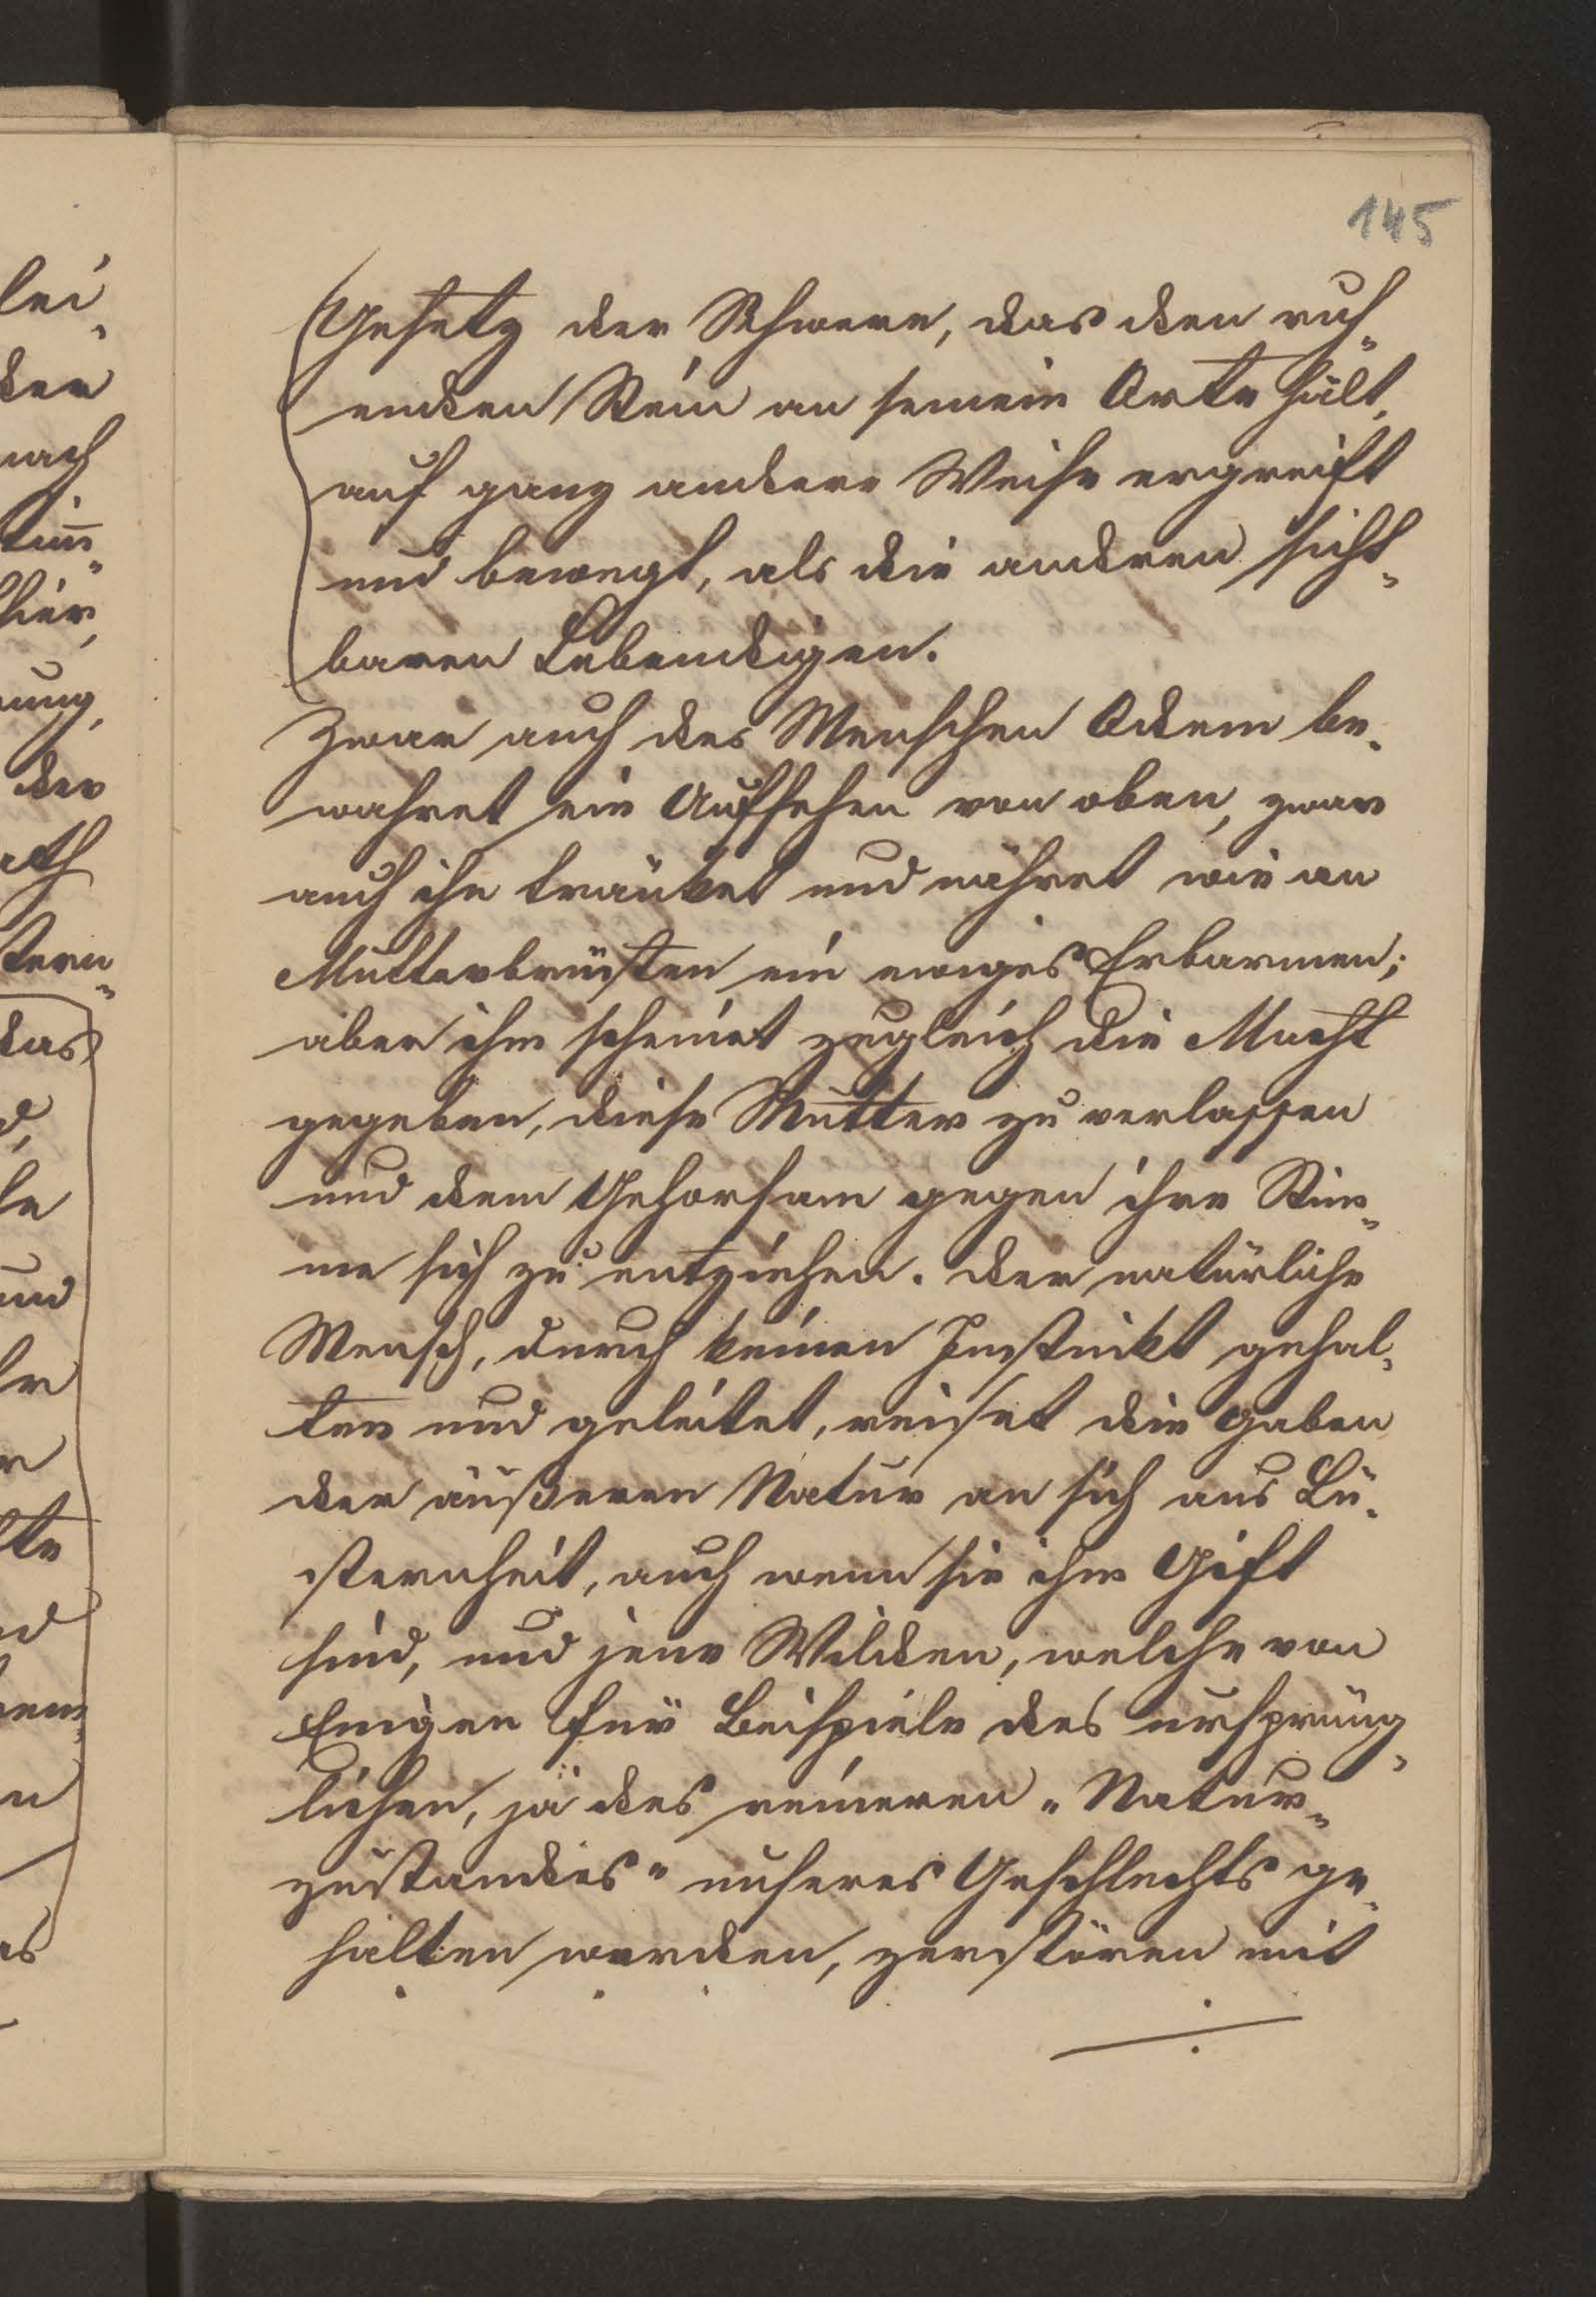 145
Gesetz der Schwere, das den ruh„
enden Stein an seinem Orte hält,
auf ganz andere Weise ergreift
und bewegt, als die anderen sicht„
baren Lebendigen.
Zwar auch des Menschen Odem be„
wahret ein Aufsehen von oben, zwar
auch ihn tränket und nähret wie an
Mutterbrüsten ein ewiges Erbarmen;
aber ihm scheinet zugleich die Macht
gegeben, diese Mutter zu verlassen
und dem Gehorsam gegen ihre Stim„
me sich zu entziehen. der natürliche
Mensch, durch keinen Instinkt gehal„
ten und geleitet, reisset die Gaben
der äußeren Natur an sich aus Lü„
sternheit, auch wenn sie ihm Gift
sind, und jene Wilden, welche von
Einigen für Beispiele des ursprüng„
lichen, ja des reineren „Natur„
zustandes" unseres Geschlechts ge„
halten werden, zerstören mit
lei„
der
nach
hier,
nung,
der
ath
stern„
das
und